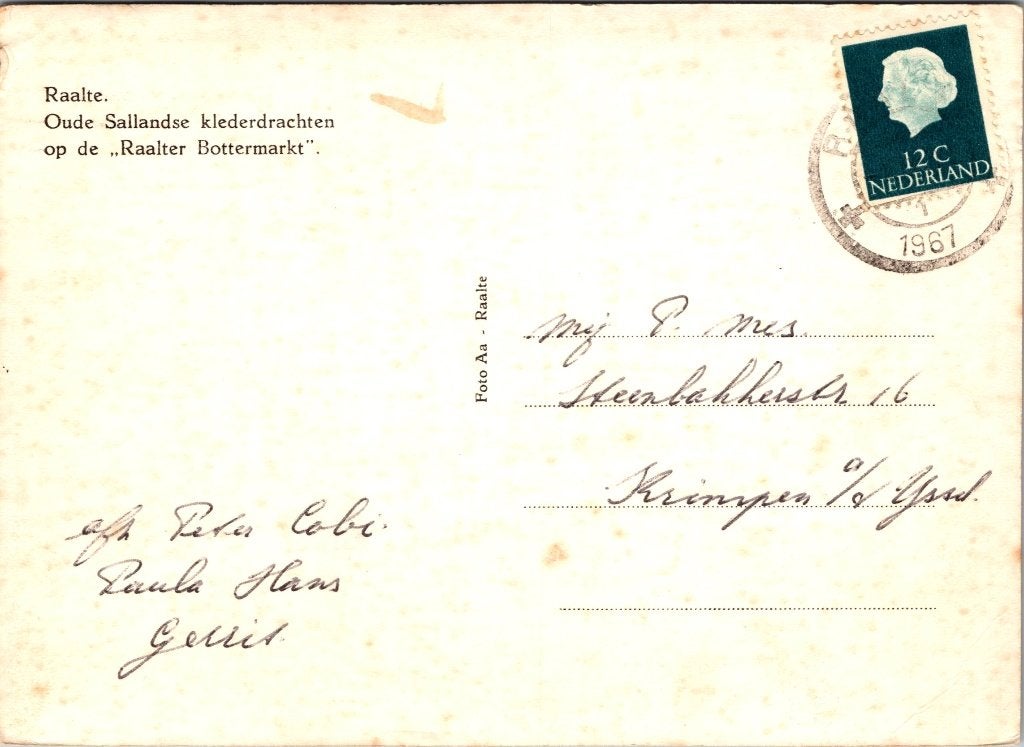 Raalte.
Oude Sallandse klederdrachten
op de „Raalter Bottermarkt".
12 C
NEDERLAND
R
1
1967
Foto Aa - Raalte
Mej P. Mes.
Steenbakkerstr 16
Krimpen a/d Yssel.
afz Peter Cobi.
Paula Hans
Gerrit.